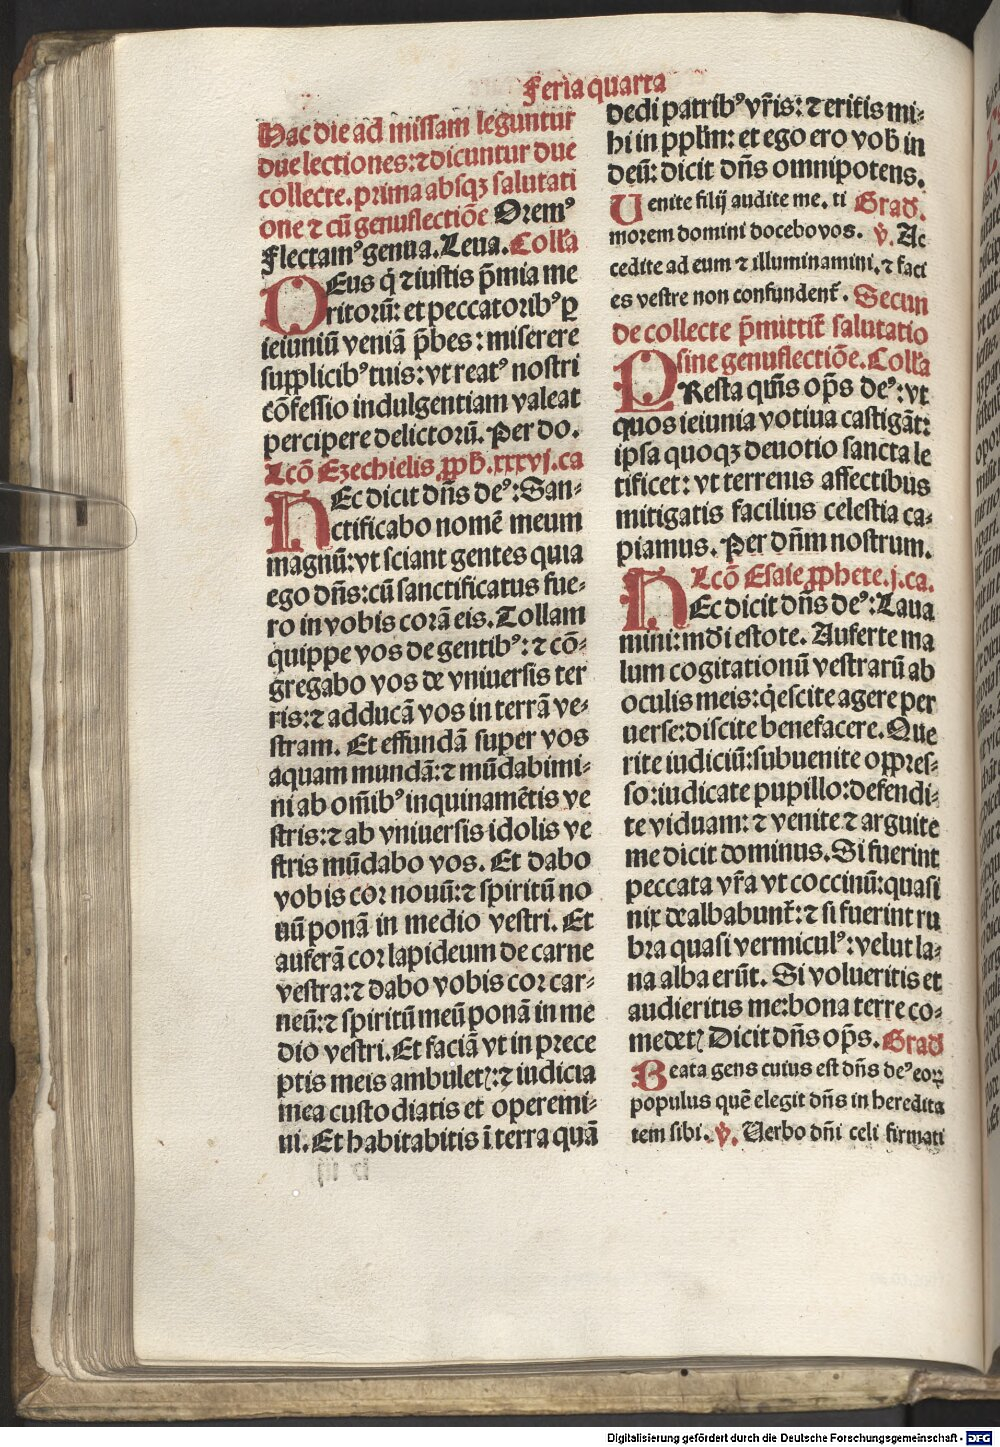 Feria quarta
Hac die ad missam leguntur
due lectiones: ⁊ dicuntur due
collecte. prima absqꝫ salutati
one ⁊ cū genuflectiōe Oremꝰ
Flectamꝰ genua. Leua. Coll'a
DEus q̇ ⁊ iustis p̄mia me
ritorū: et peccatoribꝰ ꝑ
ieiuniū veniā p̄bes: miserere
supplicibꝰ tuis: vt reatꝰ nostri
cōfessio indulgentiam valeat
percipere delictorū. Per do.
Lcō Ezechielis ꝓph̄. xxxvj. ca
HEc dicit dn̄s deꝰ: San⸗
ctificabo nomē meum
magnū: vt sciant gentes quia
ego dn̄s: cū sanctificatus fue⸗
ro in vobis corā eis. Tollam
quippe vos de gentibꝰ: ⁊ cō⸗
gregabo vos de vniuersis ter
ris: ⁊ adducā vos in terrā ve⸗
stram. Et effundā super vos
aquam mundā: ⁊ mūdabimi⸗
ni ab om̄ibꝰ inquinamētis ve
stris: ⁊ ab vniuersis idolis ve
stris mūdabo vos. Et dabo
vobis cor nouū: ⁊ spiritū no
uū ponā in medio vestri. Et
auferā cor lapideum de carne
vestra: ⁊ dabo vobis cor car⸗
neū: ⁊ spiritū meū ponā in me
dio vestri. Et faciā vt in prece
ptis meis ambulet̉: ⁊ iudicia
mea custodiatis et operemi⸗
ni. Et habitabitis ī terra quā
dedi patribꝰ vr̄is: ⁊ eritis mi⸗
hi in pplm̄: et ego ero vob̄ in
deū: dicit dn̄s omnipotens.
Uenite filij audite me. ti Grad.
morem domini docebo vos. ℣. Ac
cedite ad eum ⁊ illuminamini. ⁊ faci
es vestre non confundent̄. Secun
de collecte p̄mittit̄ salutatio
sine genuflectiōe. Coll'a
PResta qm̄s op̄s deꝰ: vt
quos ieiunia votiua castigāt:
ipsa quoqꝫ deuotio sancta le
tificet: vt terrenis affectibus
mitigatis facilius celestia ca⸗
piamus. Per dn̄m nostrum.
Lcō Esaie ꝓphete. j. ca.
HEc dicit dn̄s deꝰ: Laua
mini: mūdi estote. Auferte ma
lum cogitationū vestrarū ab
oculis meis: q̇escite agere per
uerse: discite benefacere. Que
rite iudiciū: subuenite oppres⸗
so: iudicate pupillo: defendi⸗
te viduam: ⁊ venite ⁊ arguite
me dicit dominus. Si fuerint
peccata vr̄a vt coccinū: quasi
nix dealbabunt̄: ⁊ si fuerint ru
bra quasi vermiculꝰ: velut la⸗
na alba erūt. Si volueritis et
audieritis me: bona terre co⸗
medet̉ Dicit dn̄s op̄s. Grad
Beata gens cuius est dn̄s deꝰ eoꝝ
populus quē elegit dn̄s in heredita
tem sibi. ℣. Uerbo dn̄i celi firmati
Digitalisierung gefördert durch die Deutsche Forschungsgemeinschaft - DFG